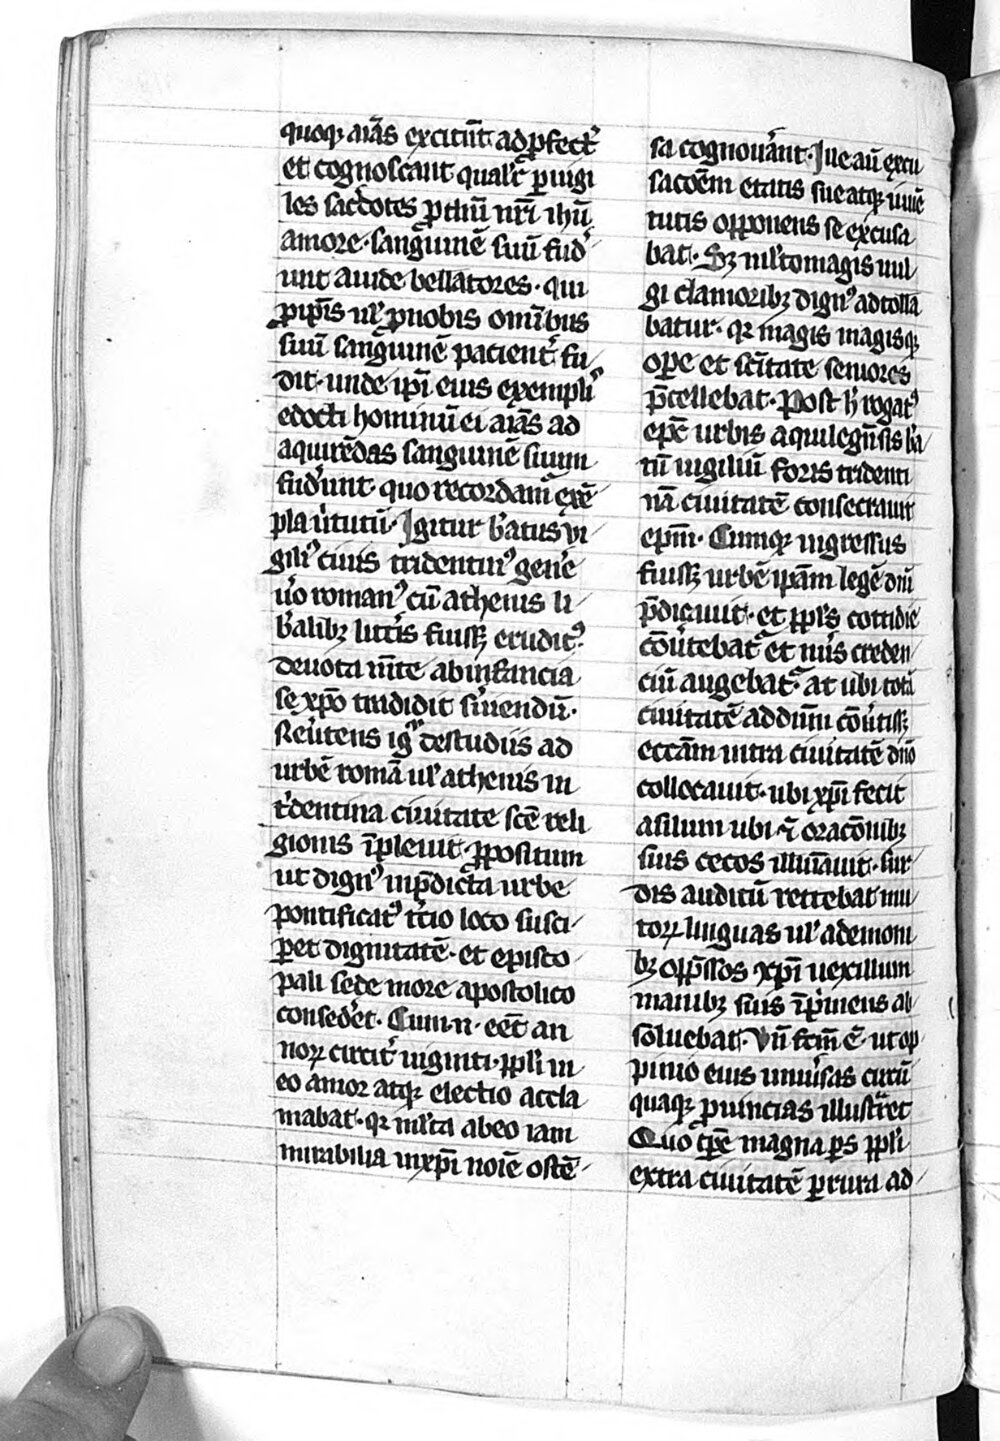 quoqꝫ aīas excitēt ad ꝑfectꝰ
et cognoscant qualr̄ ꝑuigi
les sac̓dotes ꝓ chͬi nr̄i ihū
amore · sanguinē suū fud̓
unt auide bellatores · qui
ꝓ ip̄is ul̓ ꝓ nobis omībus
suū sanguinē pacient̓ fu/
dit · unde ip̄i eius exempli
edocti hominū ei aīas ad
aquirēdas sanguinē suum
fud̓unt · quo recordam̄ exē/
pla uͥtutū · Igitur b̓atus vi/
giliꝰ ciuis tridentinꝰ gene̓
u̓o romanꝰ cū athenis li/
b̓alibꝫ litt̓is fuissꝫ eruditꝰ
deuota m̄te ab infancia
se xp̄o tradidit s̓uiendū ·
Reu̓tens igͥ de studiis ad
urbē romā ul̓ athenis in
t̓dentina ciuitate sc̄e reli
gionis īpleuit ꝓpositum
ut dignꝰ in p̄dicta urbe
pontificatꝰ t̓cio loco susci/
ꝑet dignitatē · et episco
pali sede more apostolico
consed̓et · Cum · n · eēt an
noꝝ circit̓ uiginti · ppl̓i in
eo amor atqꝫ electio accla
mabat · qꝛ ml̓ta ab eo iam
mirabilia in xp̄i noīe ostē/
sa cognou̓ant · Iue aū excu
sacōem etatis sue atqꝫ iuuē
tutis opponens se excusa
bat · Sꝫ ml̓to magis uul/
gi clamoribꝫ dignꝰ adtolla
batur · qꝛ magis magisqꝫ
oꝑe et sc̄itate seniores
p̄cellebat · Post h̄ rogatꝰ
ep̄c urbis aquilegn̄sis b̓a/
tū uigiliū foris tridenti
nā ciuitatē consecrauit
ep̄m · Cumqꝫ ingressus
fuissꝫ urbē ip̄am legē dn̄i
p̄dicauit · et ppl̓s cottidie
cōu̓tebat̓ et nu̓s creden/
ciū augebat̓ · at ubi totā
ciuitatē ad dn̄m cōu̓tissꝫ
eccām intra ciuitatē dn̄o
collocauit · ubi xp̄i fecit
asilum ubi ⁊ oracōnibꝫ
suis cecos illuīauit · sur/
dis auditū reddebat mu/
toꝝ linguas ul̓ a demoni
bꝫ opp̄ssos xp̄i uexillum
manibꝫ suis īp̓mens ab
soluebat · Vn̄ fc̄m ē · ut op/
pinio eius uniu̓sas circū
quaqꝫ ꝓuincias illustraret
Quo tꝑe magna ꝑs ppl̓i
extra ciuitatē ꝑ rura ad/